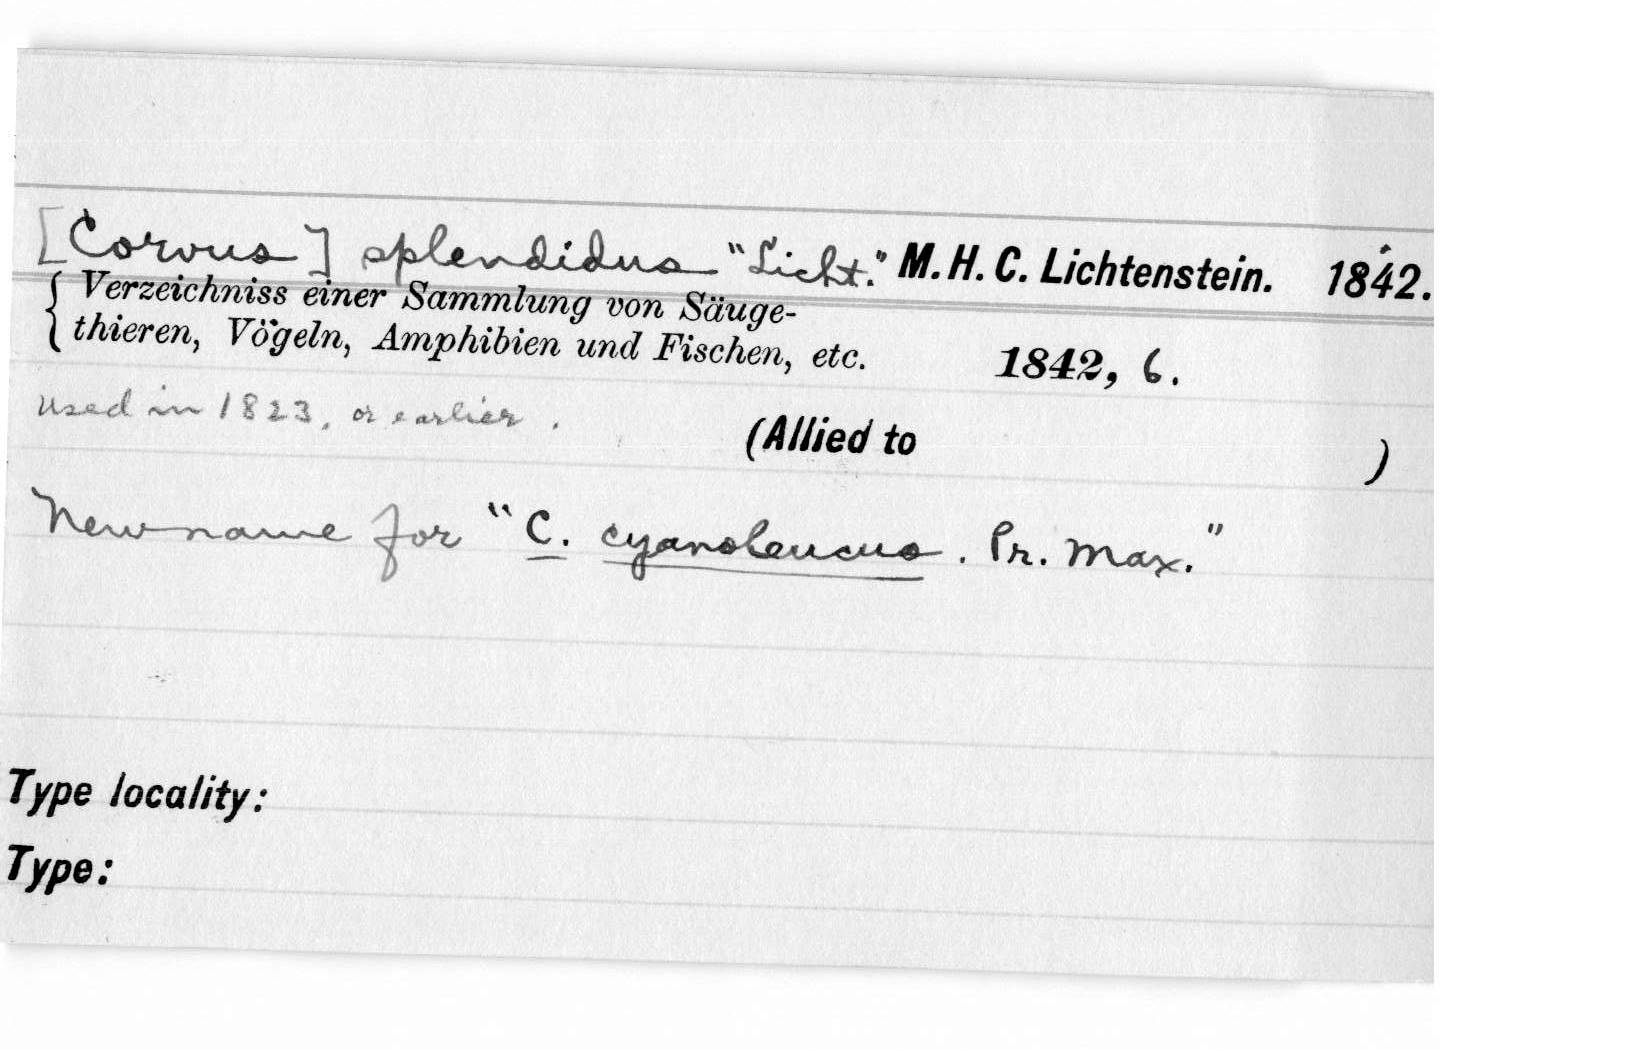 [Corvus] splendidus "Licht." M. H. C. Lichtenstein. 1842.
{ Verzeichniss einer Sammlung von Säuge-
thieren, Vögeln, Amphibien und Fischen, etc. 1842, 6.
Used in 1823, or earlier.
(Allied to )
New name for "C. cyanoleucus. Pr. Max."
Type locality:
Type: